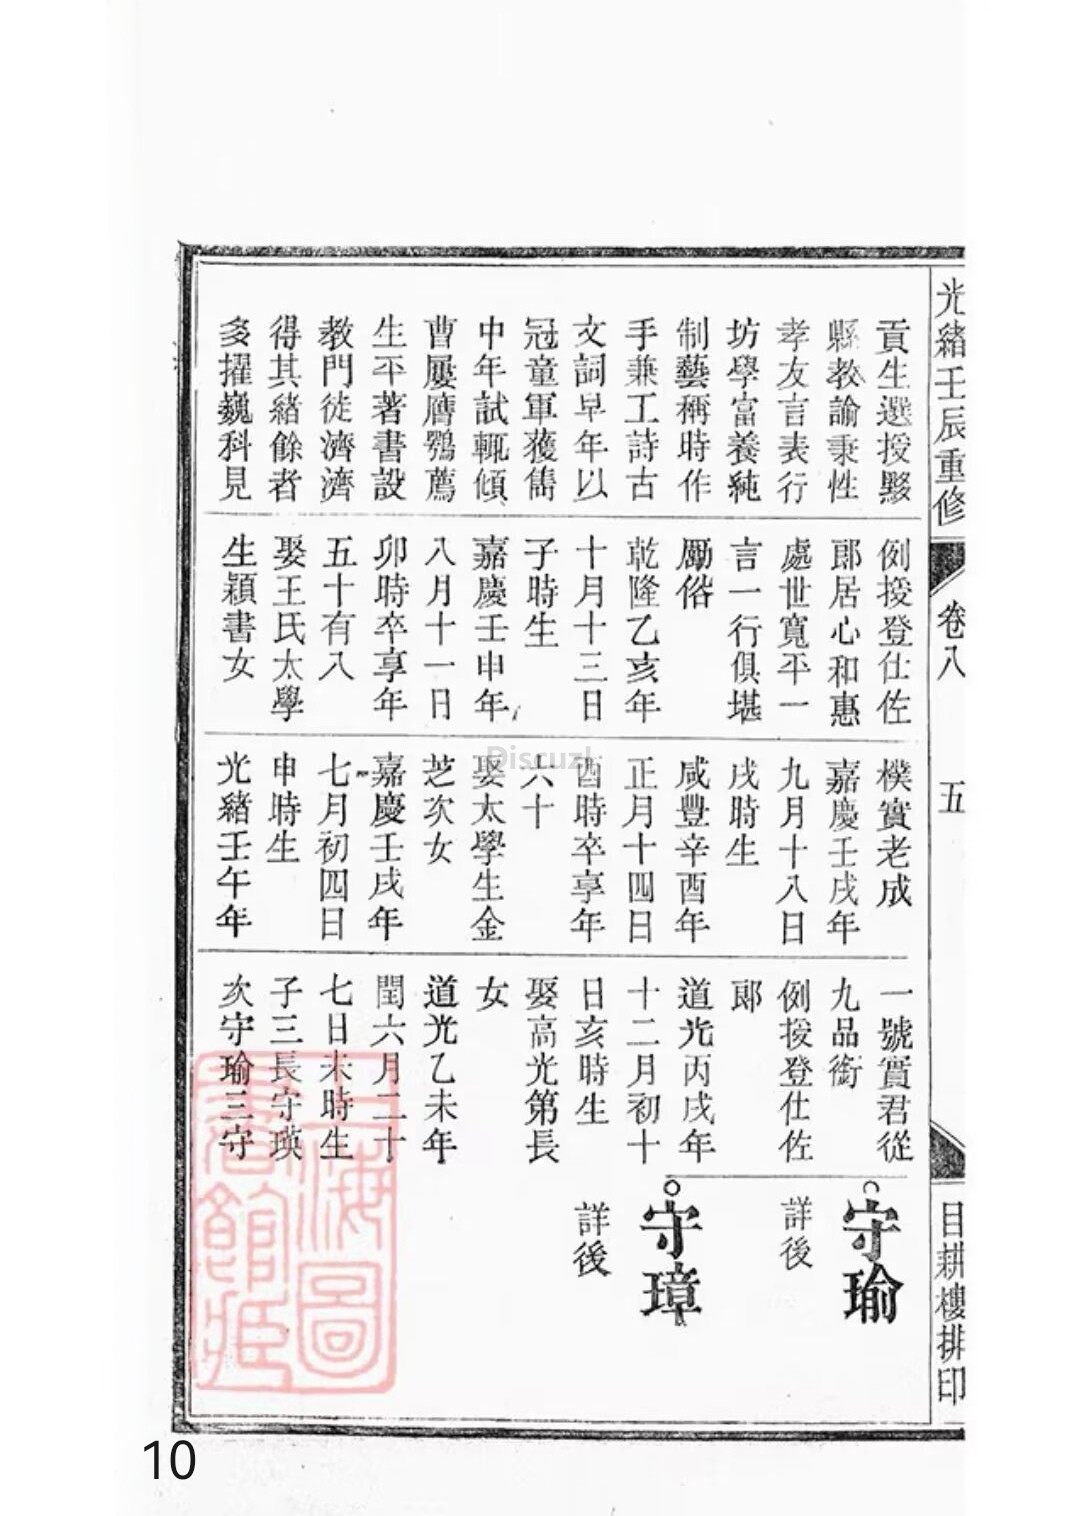 光緒壬辰重修
卷八
五
目耕樓排印
貢生選授黟
縣教諭秉性
孝友言表行
坊學富養純
制藝稱時作
手兼工詩古
文詞早年以
冠童軍獲雋
中年試輒傾
曹屢膺鶚薦
生平著書設
教門徒濟濟
得其緒餘者
多擢巍科見
例授登仕佐
郎居心和惠
處世寬平一
言一行俱堪
勵俗
乾隆乙亥年
十月十三日
子時生
嘉慶壬申年
八月十一日
卯時卒享年
五十有八
娶王氏太學
生穎書女
樸實老成
嘉慶壬戌年
九月十八日
戌時生
咸豐辛酉年
正月十四日
酉時卒享年
六十
娶太學生金
芝次女
嘉慶壬戌年
七月初四日
申時生
光緒壬午年
一號實君從
九品銜
例授登仕佐
郎
道光丙戌年
十二月初十
日亥時生
娶高光第長
女
道光乙未年
閏六月二十
七日未時生
子三長守瑛
次守瑜三守
守瑜
詳後
守璋
詳後
上海圖
書館藏
Discuz!
10